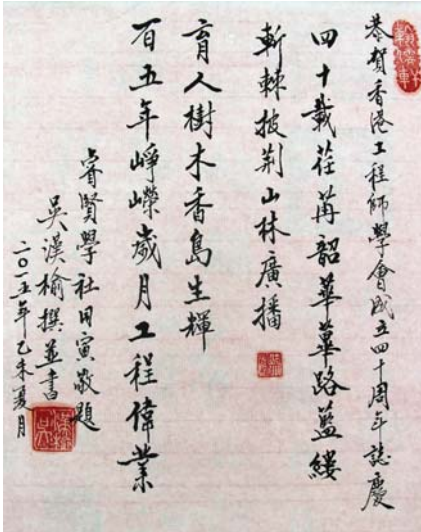 恭賀香港工程師學會成立四十周年誌慶
四十載荏苒韶華蓽路籃縷
斬棘披荆山林廣播
育人樹木香島生輝
百五年崢嶸歲月工程偉業
睿賢學社同寅敬題
吳漢榆撰並書
二〇一五年乙未夏月